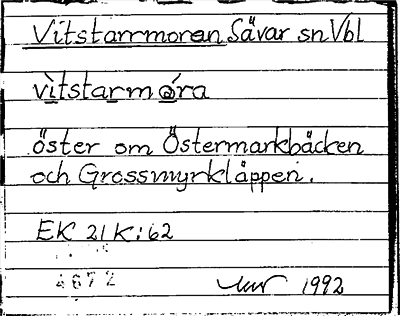 Vitstarrmoran Sävar sn Vbl
vìtstarm óra
öster om Östermarkbäcken
och Grossmyrkläppen.
EK 21 K:62
4672 1992